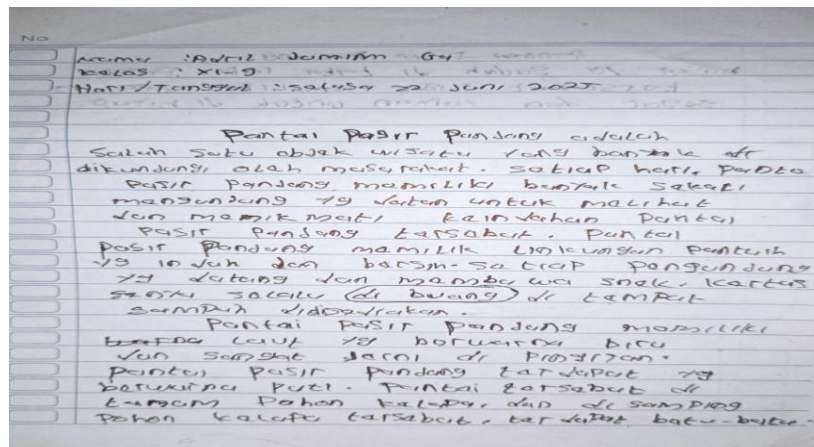 No
Nama : Adril Damian Gy
Kelas : XI-9
Hari/Tanggal : Selasa 22 Juni 2025
Pantai Pasir Pandang adalah
Salah satu objek wisata yang banyak di
dikundungi olah masyarakat. Satiap hari, Panta
Pasir Pandang mamiliki banyak sakali
mangundung yg datan untuk malihat
dan manikmati kaindahan Pantai
Pasir Pandang tarsabut. Pantai
Pasir Pandang mamilik lingkungan Pantaih
yg indah dan barsih. Satiap Pangundung
yg datang dan mambawa snak. Kartas
salalu (di buang) di tampat
sampah disadiakan.
Pantai Pasir Pandang mamiliki
laut yg borwarna biru
dan sangat jarni di
Pantai Pasir Pandang tardapat yg
barwarna puti. Pantai tarsabut di
tumam Pohon Kalapa, dan di samping
Pohon Kalapa tarsabut, tardapat batu-batu-